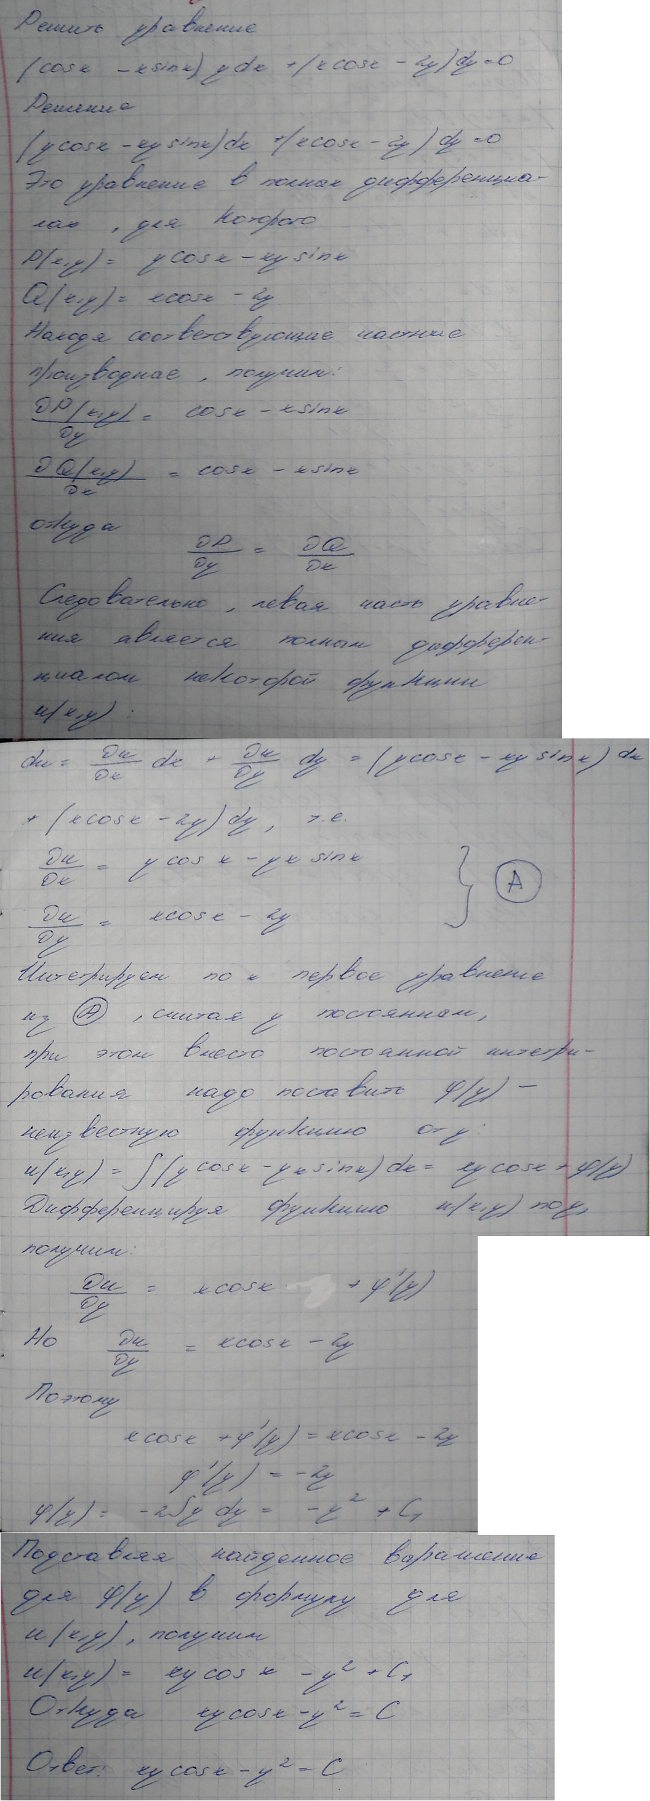 Решить уравнение
(cosx - xsinx) y dx + (xcosx - 2y) dy = 0
Решение
(y cosx - xy sinx) dx + (xcosx - 2y) dy = 0
Это уравнение в полных дифференциа-
лах, для которого
P(x,y) = y cosx - xy sinx
Q(x,y) = xcosx - 2y
Находя соответствующие частные
производные, получим:
∂P(x,y)/∂y = cosx - xsinx
∂Q(x,y)/∂x = cosx - xsinx
откуда
∂P/∂y = ∂Q/∂x
Следовательно, левая часть уравне-
ния является полным дифферен-
циалом некоторой функции
u(x,y):
du = ∂u/∂x dx + ∂u/∂y dy = (y cosx - xy sinx) dx
+ (xcosx - 2y) dy, т.е.
∂u/∂x = y cosx - yx sinx
} A
∂u/∂y = xcosx - 2y
Интегрируем по x первое уравнение
из A, считая y постоянным,
при этом вместо постоянной интегри-
рования надо поставить φ(y) -
неизвестную функцию от y:
u(x,y) = ∫(y cosx - yx sinx) dx = xy cosx + φ(y)
Дифференцируя функцию u(x,y) по y,
получим:
∂u/∂y = xcosx + φ'(y)
Но ∂u/∂y = xcosx - 2y
Поэтому
xcosx + φ'(y) = xcosx - 2y
φ'(y) = -2y
φ(y) = -2∫y dy = -y² + C₁
Подставляя найденное выражение
для φ(y) в формулу для
u(x,y), получим
u(x,y) = xy cosx - y² + C₁
Откуда xy cosx - y² = C
Ответ: xy cosx - y² = C